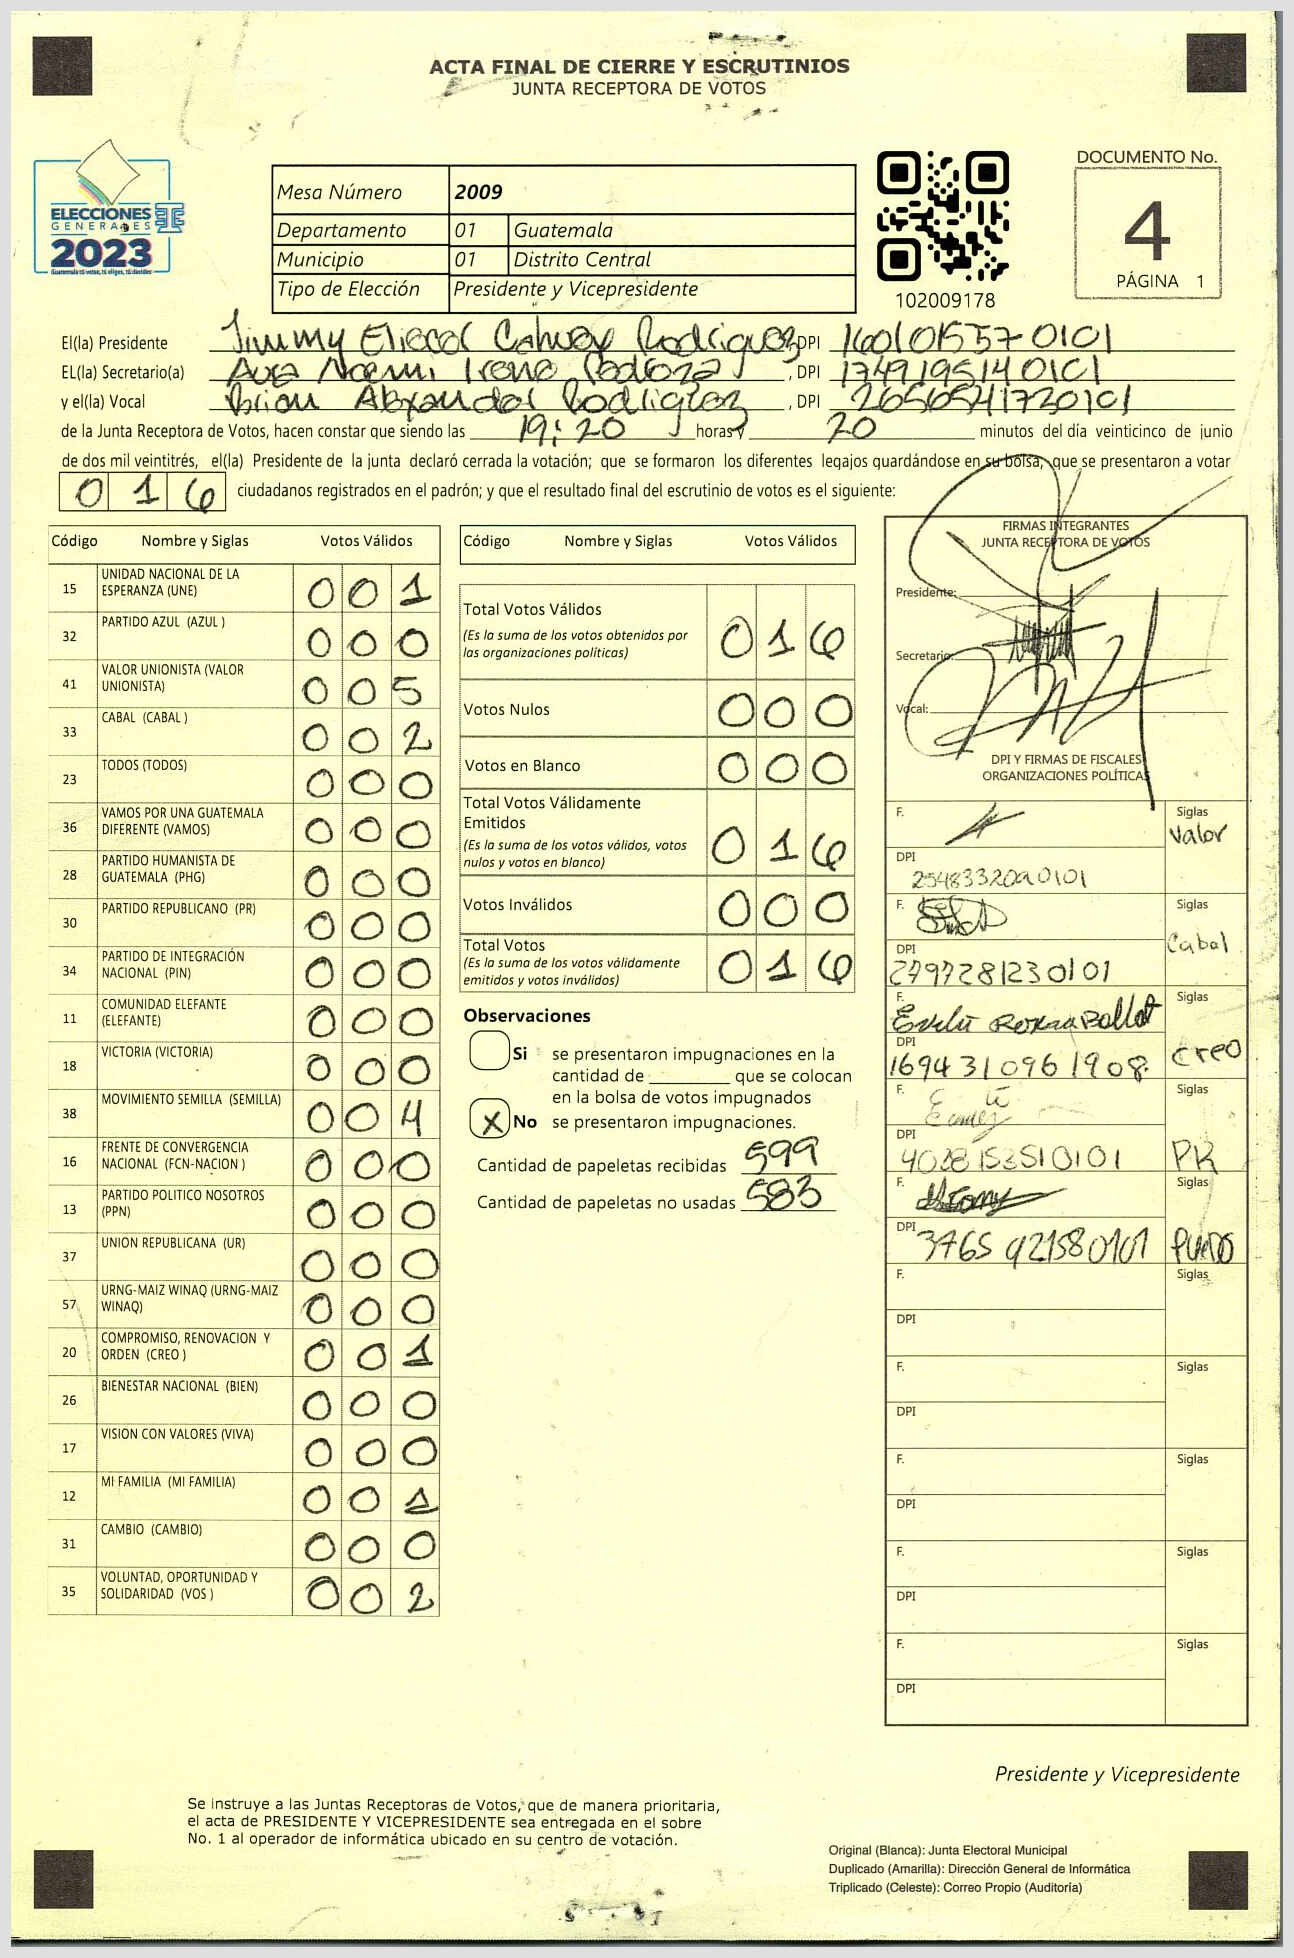 ACTA FINAL DE CIERRE Y ESCRUTINIOS
JUNTA RECEPTORA DE VOTOS
ELECCIONES
GENERALES
2023
Guatemala tú votas, tú eliges, tú decides
Mesa Número 2009
Departamento 01 Guatemala
Municipio 01 Distrito Central
Tipo de Elección Presidente y Vicepresidente
102009178
DOCUMENTO No.
4
PÁGINA 1
El(la) Presidente Jimmy Eliecer Rodriguez DPI 1601015570101
EL(la) Secretario(a) Aura Noemi Irene Pedroza, DPI 1749195140101
y el(la) Vocal Brian Alexander Rodriguez, DPI 2656541720101
de la Junta Receptora de Votos, hacen constar que siendo las 19:20 horas y 20 minutos del día veinticinco de junio
de dos mil veintitrés, el(la) Presidente de la junta declaró cerrada la votación; que se formaron los diferentes legajos guardándose en su bolsa; que se presentaron a votar
016 ciudadanos registrados en el padrón; y que el resultado final del escrutinio de votos es el siguiente:
Código Nombre y Siglas Votos Válidos
15 UNIDAD NACIONAL DE LA ESPERANZA (UNE) 0 0 1
32 PARTIDO AZUL (AZUL ) 0 0 0
41 VALOR UNIONISTA (VALOR UNIONISTA) 0 0 5
33 CABAL (CABAL ) 0 0 2
23 TODOS (TODOS) 0 0 0
36 VAMOS POR UNA GUATEMALA DIFERENTE (VAMOS) 0 0 0
28 PARTIDO HUMANISTA DE GUATEMALA (PHG) 0 0 0
30 PARTIDO REPUBLICANO (PR) 0 0 0
34 PARTIDO DE INTEGRACIÓN NACIONAL (PIN) 0 0 0
11 COMUNIDAD ELEFANTE (ELEFANTE) 0 0 0
18 VICTORIA (VICTORIA) 0 0 0
38 MOVIMIENTO SEMILLA (SEMILLA) 0 0 4
16 FRENTE DE CONVERGENCIA NACIONAL (FCN-NACION ) 0 0 0
13 PARTIDO POLITICO NOSOTROS (PPN) 0 0 0
37 UNION REPUBLICANA (UR) 0 0 0
57 URNG-MAIZ WINAQ (URNG-MAIZ WINAQ) 0 0 0
20 COMPROMISO, RENOVACION Y ORDEN (CREO ) 0 0 1
26 BIENESTAR NACIONAL (BIEN) 0 0 0
17 VISION CON VALORES (VIVA) 0 0 0
12 MI FAMILIA (MI FAMILIA) 0 0 1
31 CAMBIO (CAMBIO) 0 0 0
35 VOLUNTAD, OPORTUNIDAD Y SOLIDARIDAD (VOS ) 0 0 2
Código Nombre y Siglas Votos Válidos
Total Votos Válidos 0 1 6
(Es la suma de los votos obtenidos por
las organizaciones políticas)
Votos Nulos 0 0 0
Votos en Blanco 0 0 0
Total Votos Válidamente
Emitidos 0 1 6
(Es la suma de los votos válidos, votos
nulos y votos en blanco)
Votos Inválidos 0 0 0
Total Votos 0 1 6
(Es la suma de los votos válidamente
emitidos y votos inválidos)
Observaciones
Si se presentaron impugnaciones en la
cantidad de ________ que se colocan
en la bolsa de votos impugnados
X No se presentaron impugnaciones.
Cantidad de papeletas recibidas 599
Cantidad de papeletas no usadas 583
FIRMAS INTEGRANTES
JUNTA RECEPTORA DE VOTOS
Presidente:
Secretario:
Vocal:
DPI Y FIRMAS DE FISCALES
ORGANIZACIONES POLÍTICAS
F. Siglas Valor
DPI 2548332090101
F. Siglas Cabal
DPI 2797281230101
F. Siglas Creo
DPI 1694310961908
F. Siglas PR
DPI 4028153510101
F. Siglas
DPI 3765921580101
F. Siglas
DPI
F. Siglas
DPI
F. Siglas
DPI
F. Siglas
DPI
F. Siglas
DPI
Presidente y Vicepresidente
Se instruye a las Juntas Receptoras de Votos, que de manera prioritaria,
el acta de PRESIDENTE Y VICEPRESIDENTE sea entregada en el sobre
No. 1 al operador de informática ubicado en su centro de votación.
Original (Blanca): Junta Electoral Municipal
Duplicado (Amarilla): Dirección General de Informática
Triplicado (Celeste): Correo Propio (Auditoría)